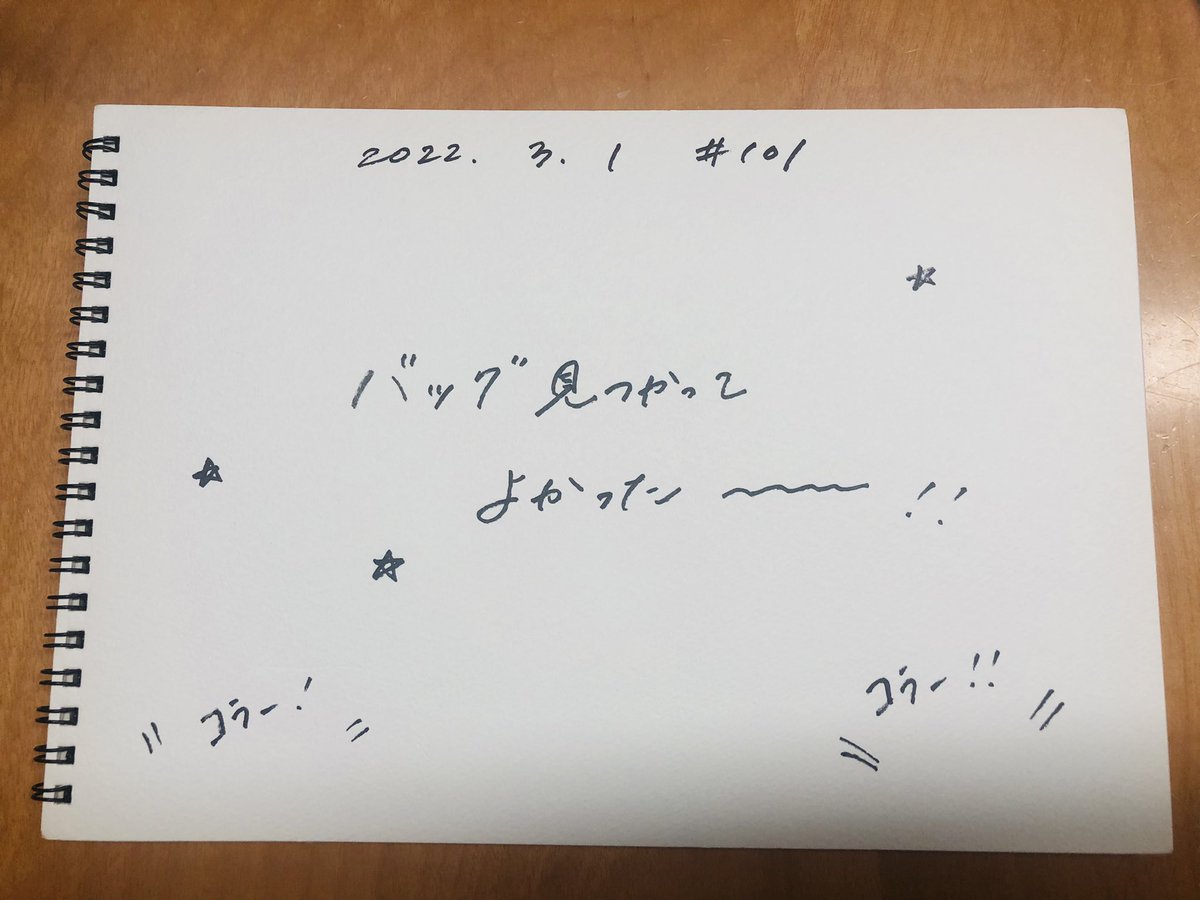 2022. 3. 1 #101
バッグ見つかって
よかったー〜〜〜!!
コラー!
コラー!!